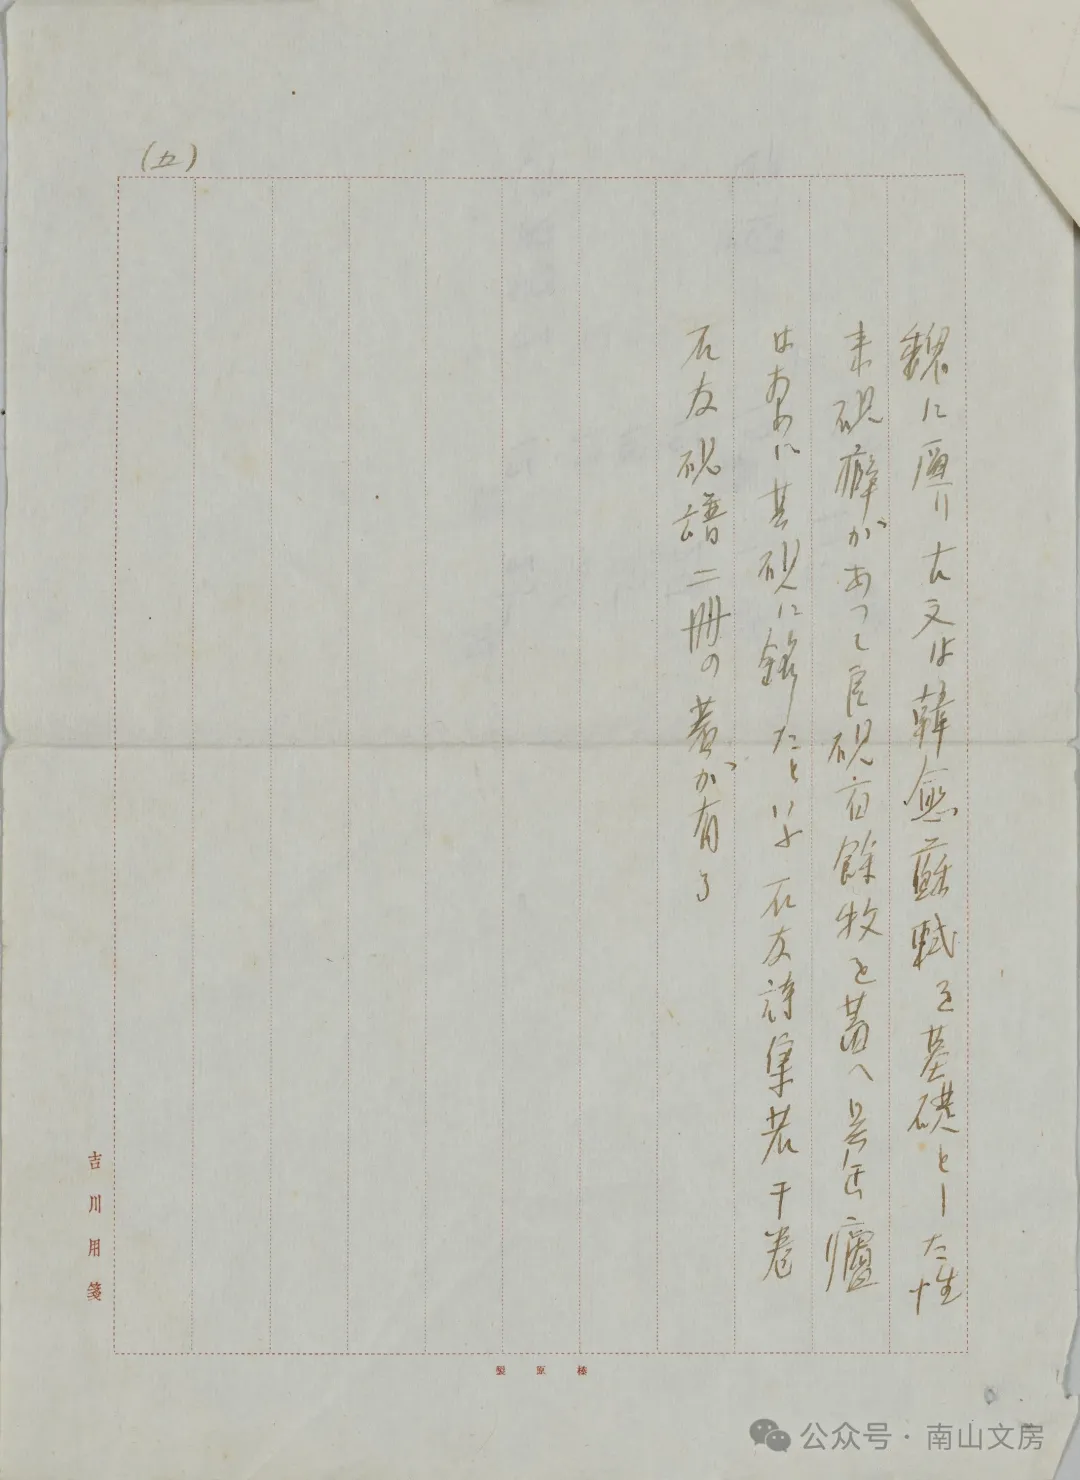 (五)
魏に溯り古文は韓愈蘇軾を基礎とした性
来硯癖があって良硯百餘枚を蓄へ呉缶廬
は為めに其硯に銘したといふ石友詩集若干卷
石友硯譜二冊の著が有る
吉川用箋
榛原製
公众号·南山文房